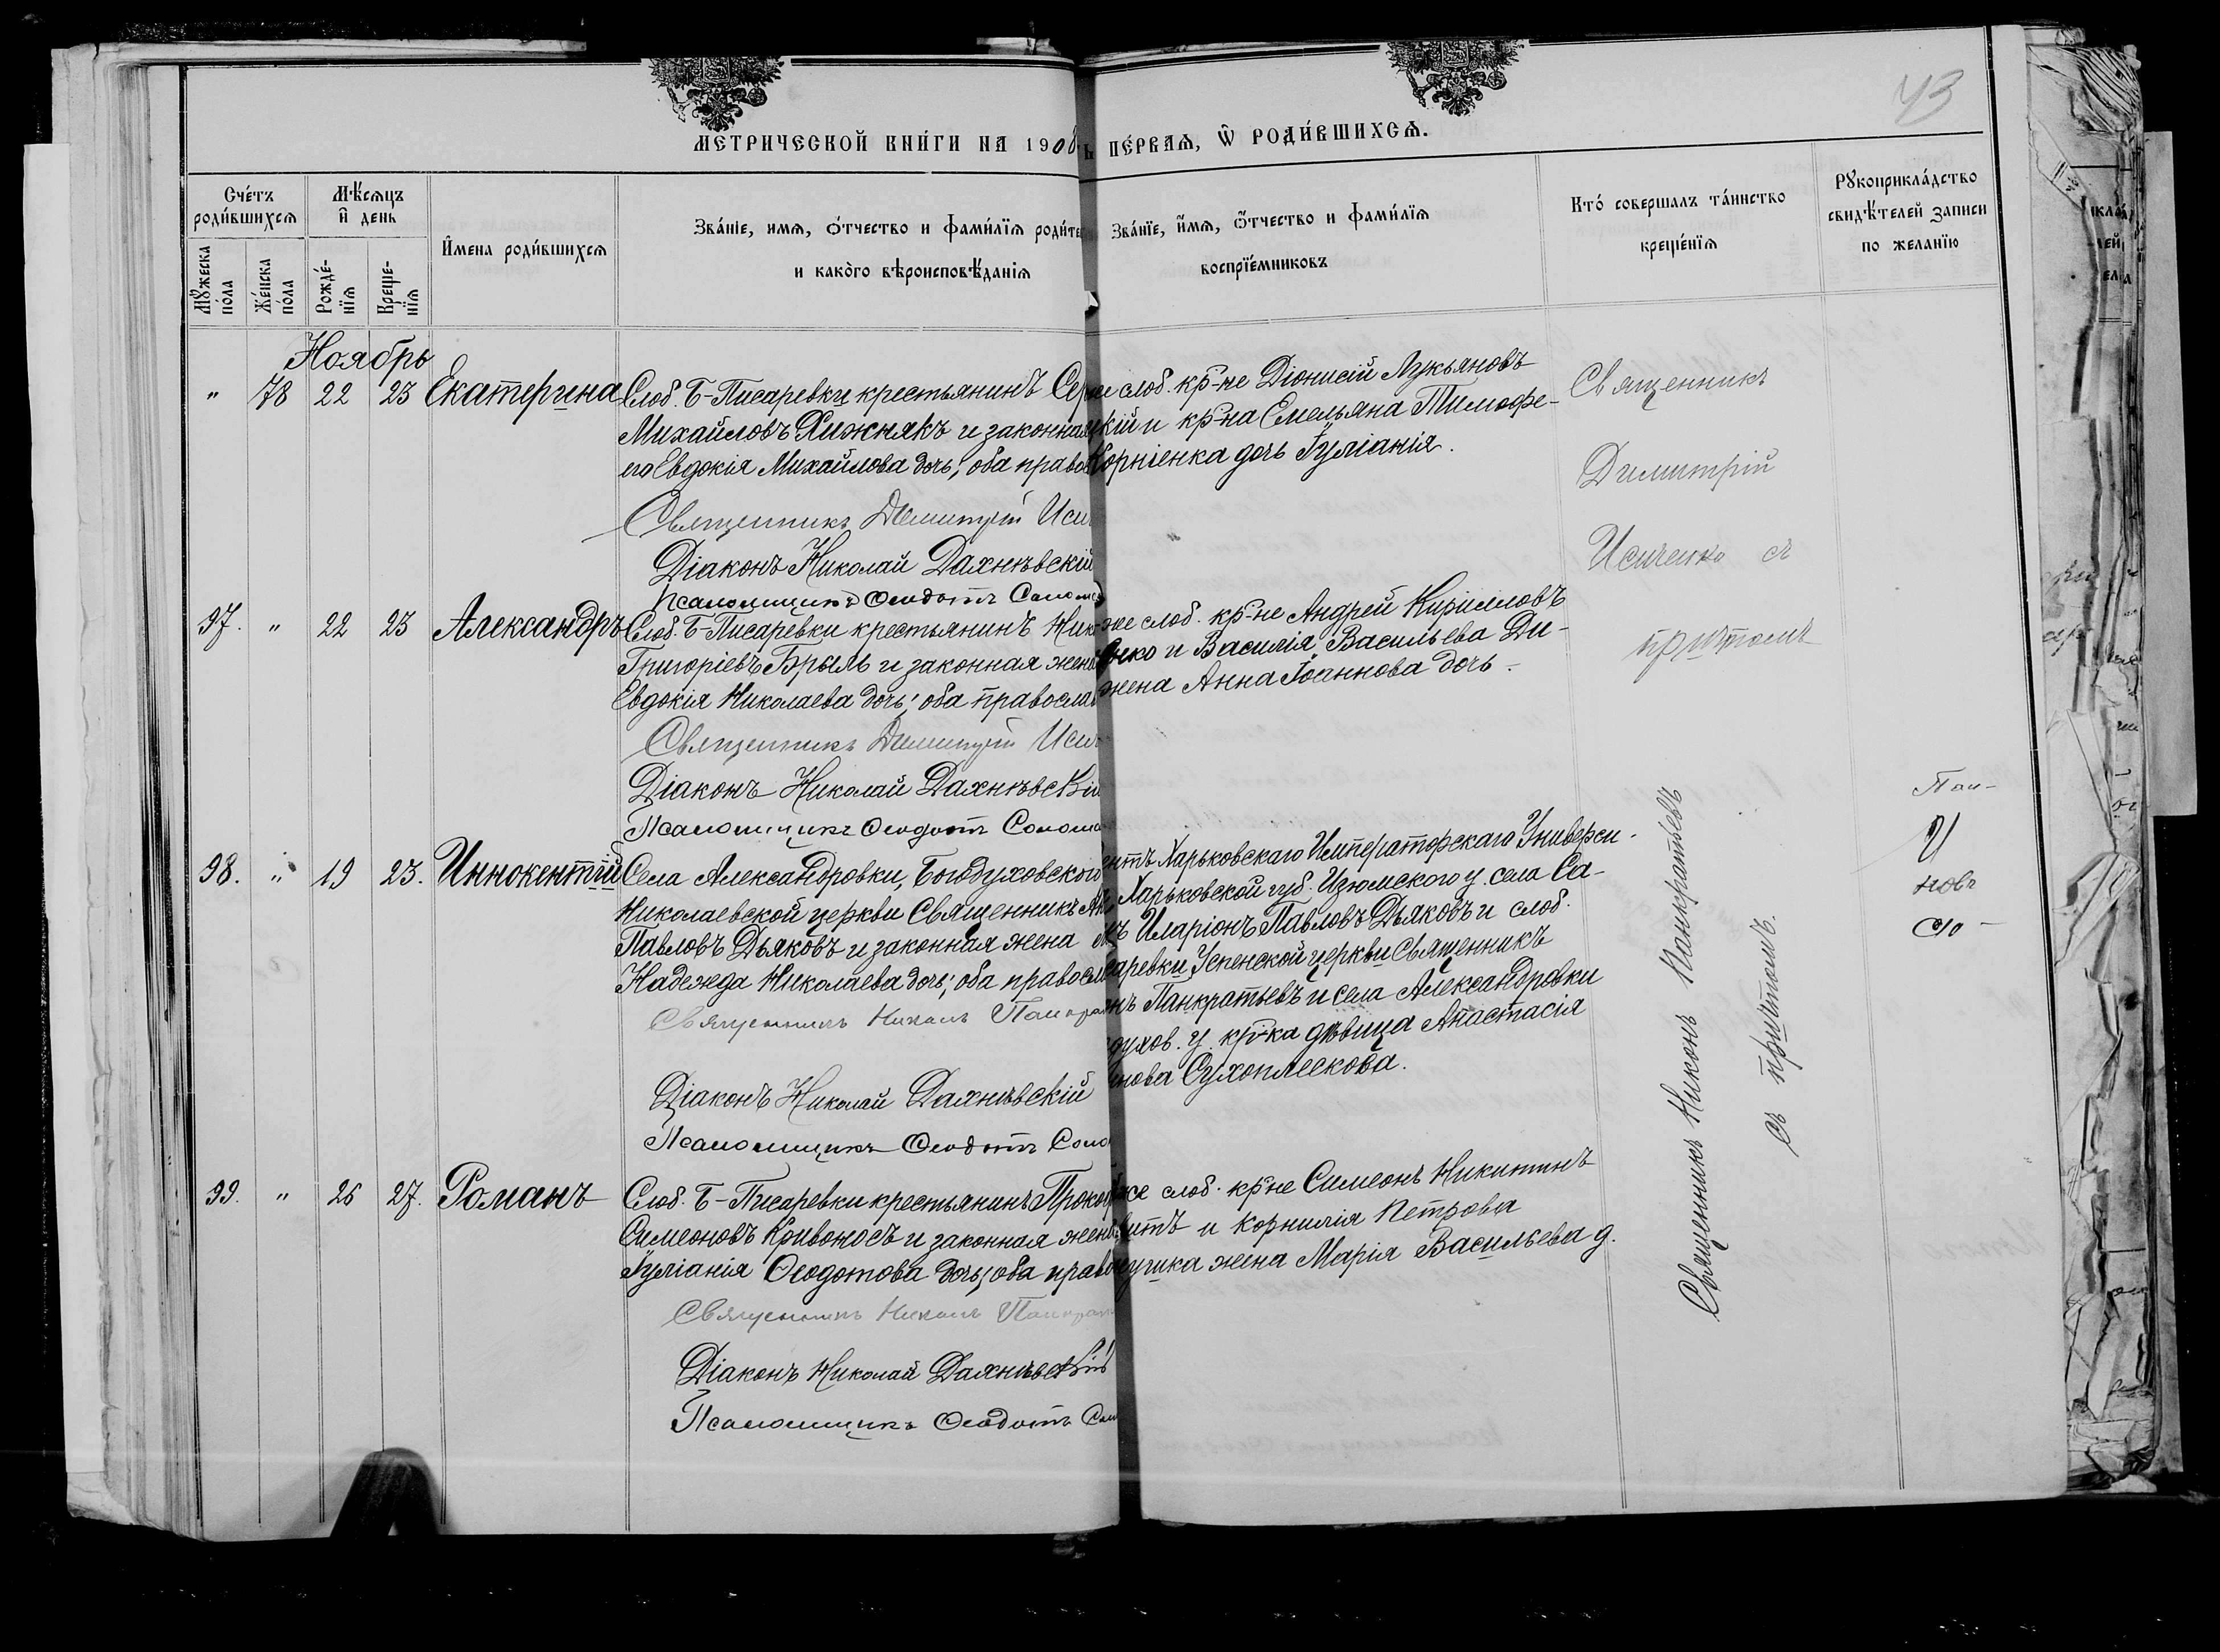 43
МЕТРИЧЕСКОЙ КНИ́ГИ НА 1908
ПЕ́РВАѦ, Ѿ РОДИ́ВШИХСѦ.
Сче́тъ родѝвшихсѧ
Мѣ́сѧцъ и҆ день
Мꙋ́жеска по́ла
Же́нска по́ла
Рожде́-нїѧ
Креще-нїѧ
И҆мена роди́вшихсѧ
Зва́нїе, имѧ, ѻ҆́тчество и фами́лїѧ роди́те
и како́го вѣроисповѣ́данїѧ
Зва́нїе, и҆́мѧ, ѻ҆́тчество и фами́лїѧ
воспрїе́мниковъ
Кто́ совершалъ та́инство
креще́нїѧ
Рꙋкоприкла́дство
свидѣ́телей записи
по желанїю
Ноябрь
" 78 22 23 Екатерина
Слоб. Б-Писаревки крестьянинъ Сер
Михайловъ Хижнякъ и законная
его Евдокія Михайлова дочь; оба право
Священникъ Димитрій Иси
Діаконъ Николай Дахнѣвскій
Псаломщикъ Ѳеодотъ Соло
же слоб. кр-не Діонисій Лукьяновъ
кій и кр-на Емельяна Тимофе-
Корніенка дочь Іуліанія.
Священникъ
Димитрій
Исиченко съ
притомъ
97. " 22 23 Александръ
Слоб. Б-Писаревки крестьянинъ Ник
Григоріевъ Брыль и законная жена
Евдокія Николаева дочь; оба православ
Священникъ Димитрій Иси
Діаконъ Николай Дахнѣвскій
Псаломщикъ Ѳеодотъ Солом
же слоб. кр-не Андрей Кирилловъ
енко и Василія Васильева Ди-
жена Анна Іоаннова дочь.
98. " 19 23. Иннокентій
Села Александровки, Богодуховского
Николаевской церкви Священникъ
Павловъ Дьяковъ и законная жена
Надежда Николаева дочь; оба правосл
Священникъ Никонъ Панкра
Діаконъ Николай Дахнѣвскій
Псаломщикъ Ѳеодотъ Соло
ентъ Харьковскаго Императорскаго Универси-
Харьковской губ. Изюмского у. села Са-
Иларіонъ Павловъ Дьяковъ и слоб.
саревки Успенской церкви Священникъ
нъ Панкратьевъ и села Александровки
духов. у. кр-ка дѣвица Анастасія
нова Сухоплескова.
Священникъ Никонъ Панкратьевъ
съ притомъ.
99. " 26 27. Романъ
Слоб. Б-Писаревки крестьянинъ Прокоп
Симеоновъ Кривоносъ и законная жена
Іуліанія Ѳеодотова дочь; оба право
Священникъ Никонъ Панкрат
Діаконъ Николай Дахнѣвскій
Псаломщикъ Ѳеодотъ Соло
же слоб. кр-не Симеонъ Никитинъ
и Корнилія Петрова
жена Марія Васильева д.